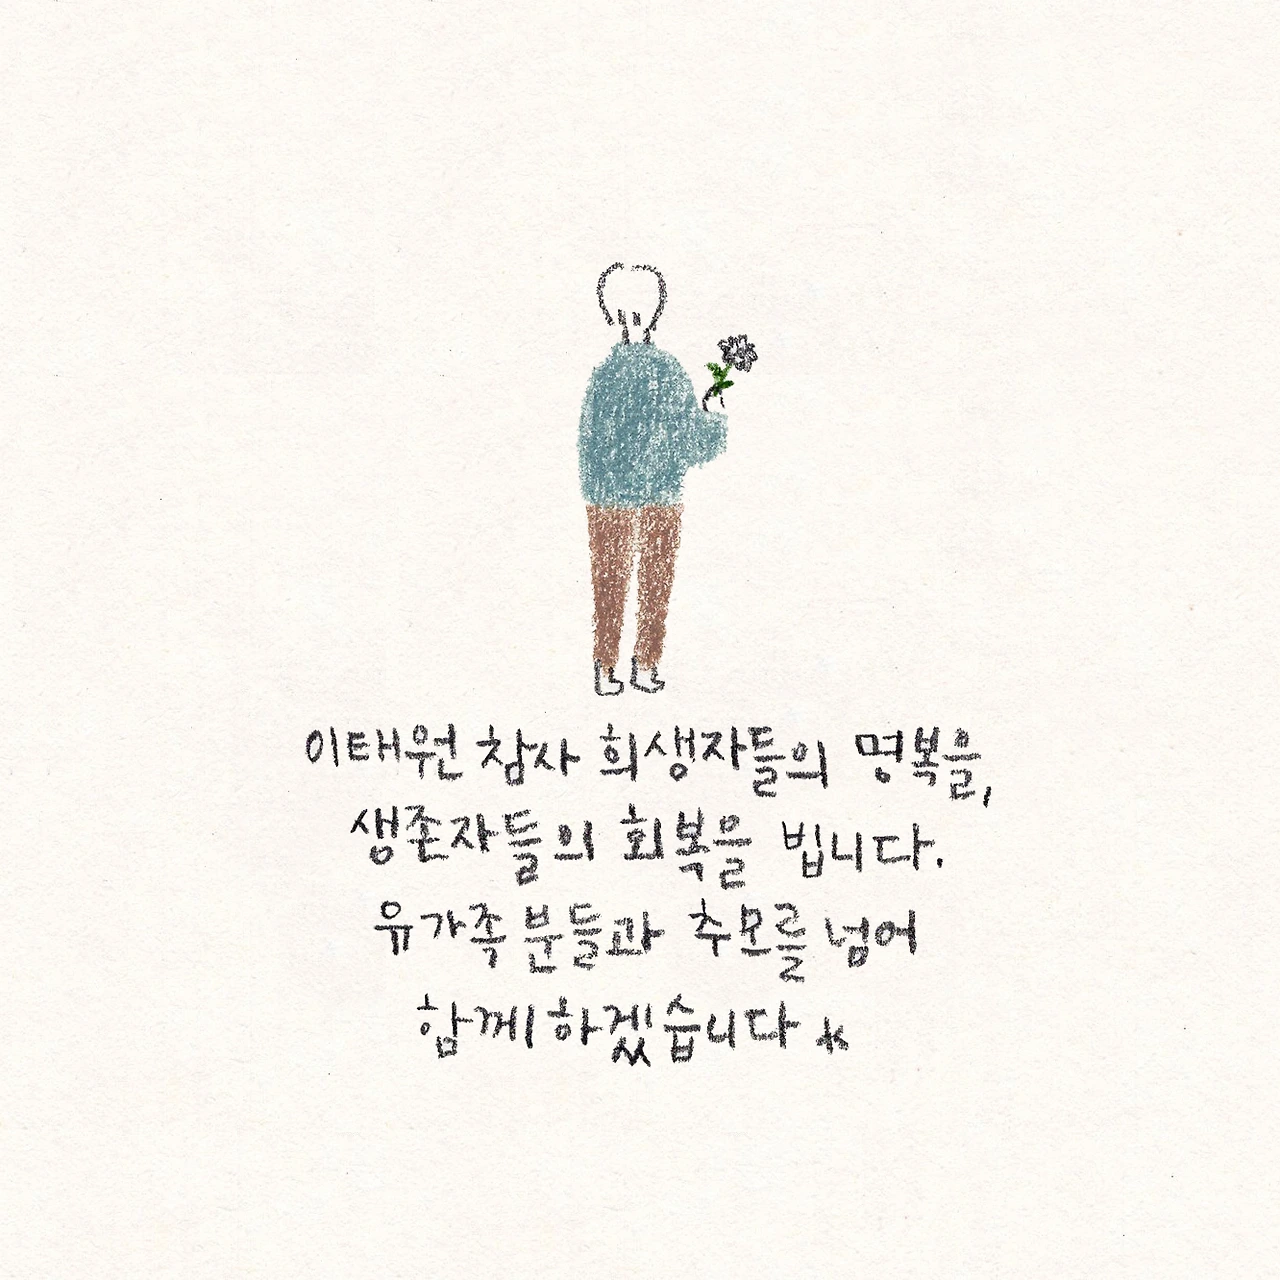 이태원 참사 희생자들의 명복을,
생존자들의 회복을 빕니다.
유가족 분들과 추모를 넘어
함께 하겠습니다